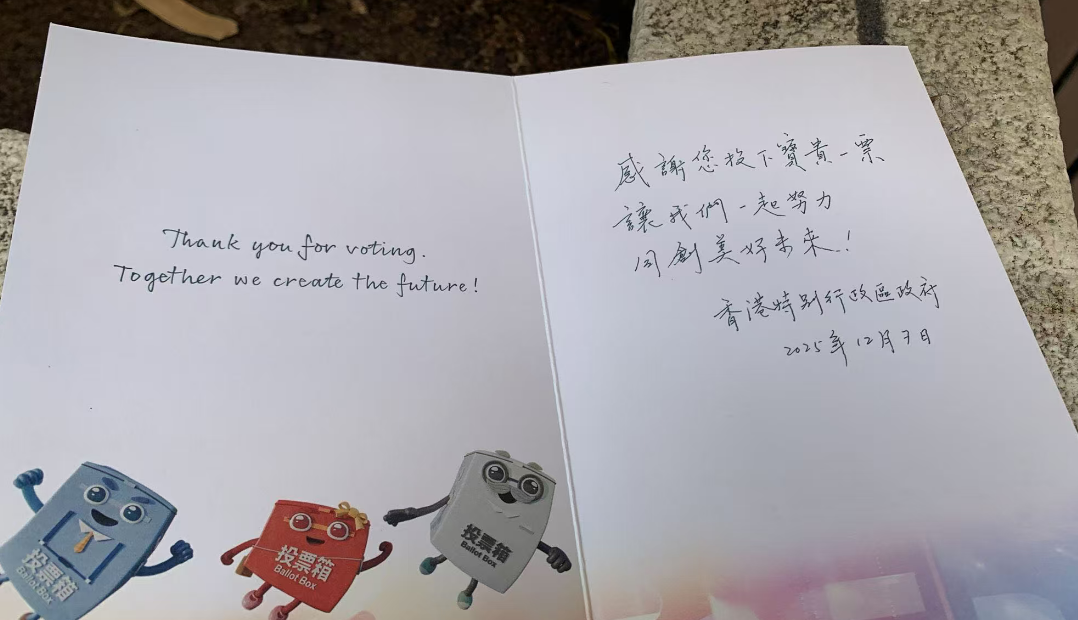 Thank you for voting.
Together we create the future!
感謝您投下寶貴一票
讓我們一起努力
同創美好未來！
香港特別行政區政府
2025年12月7日
投票箱
Ballot Box
投票箱
Ballot Box
投票箱
Ballot Box